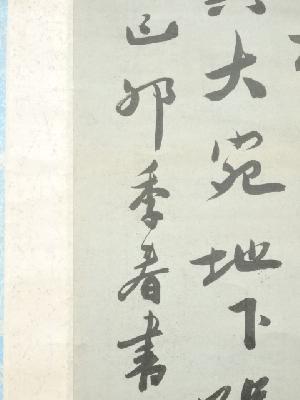 大宛地下
己卯季春書